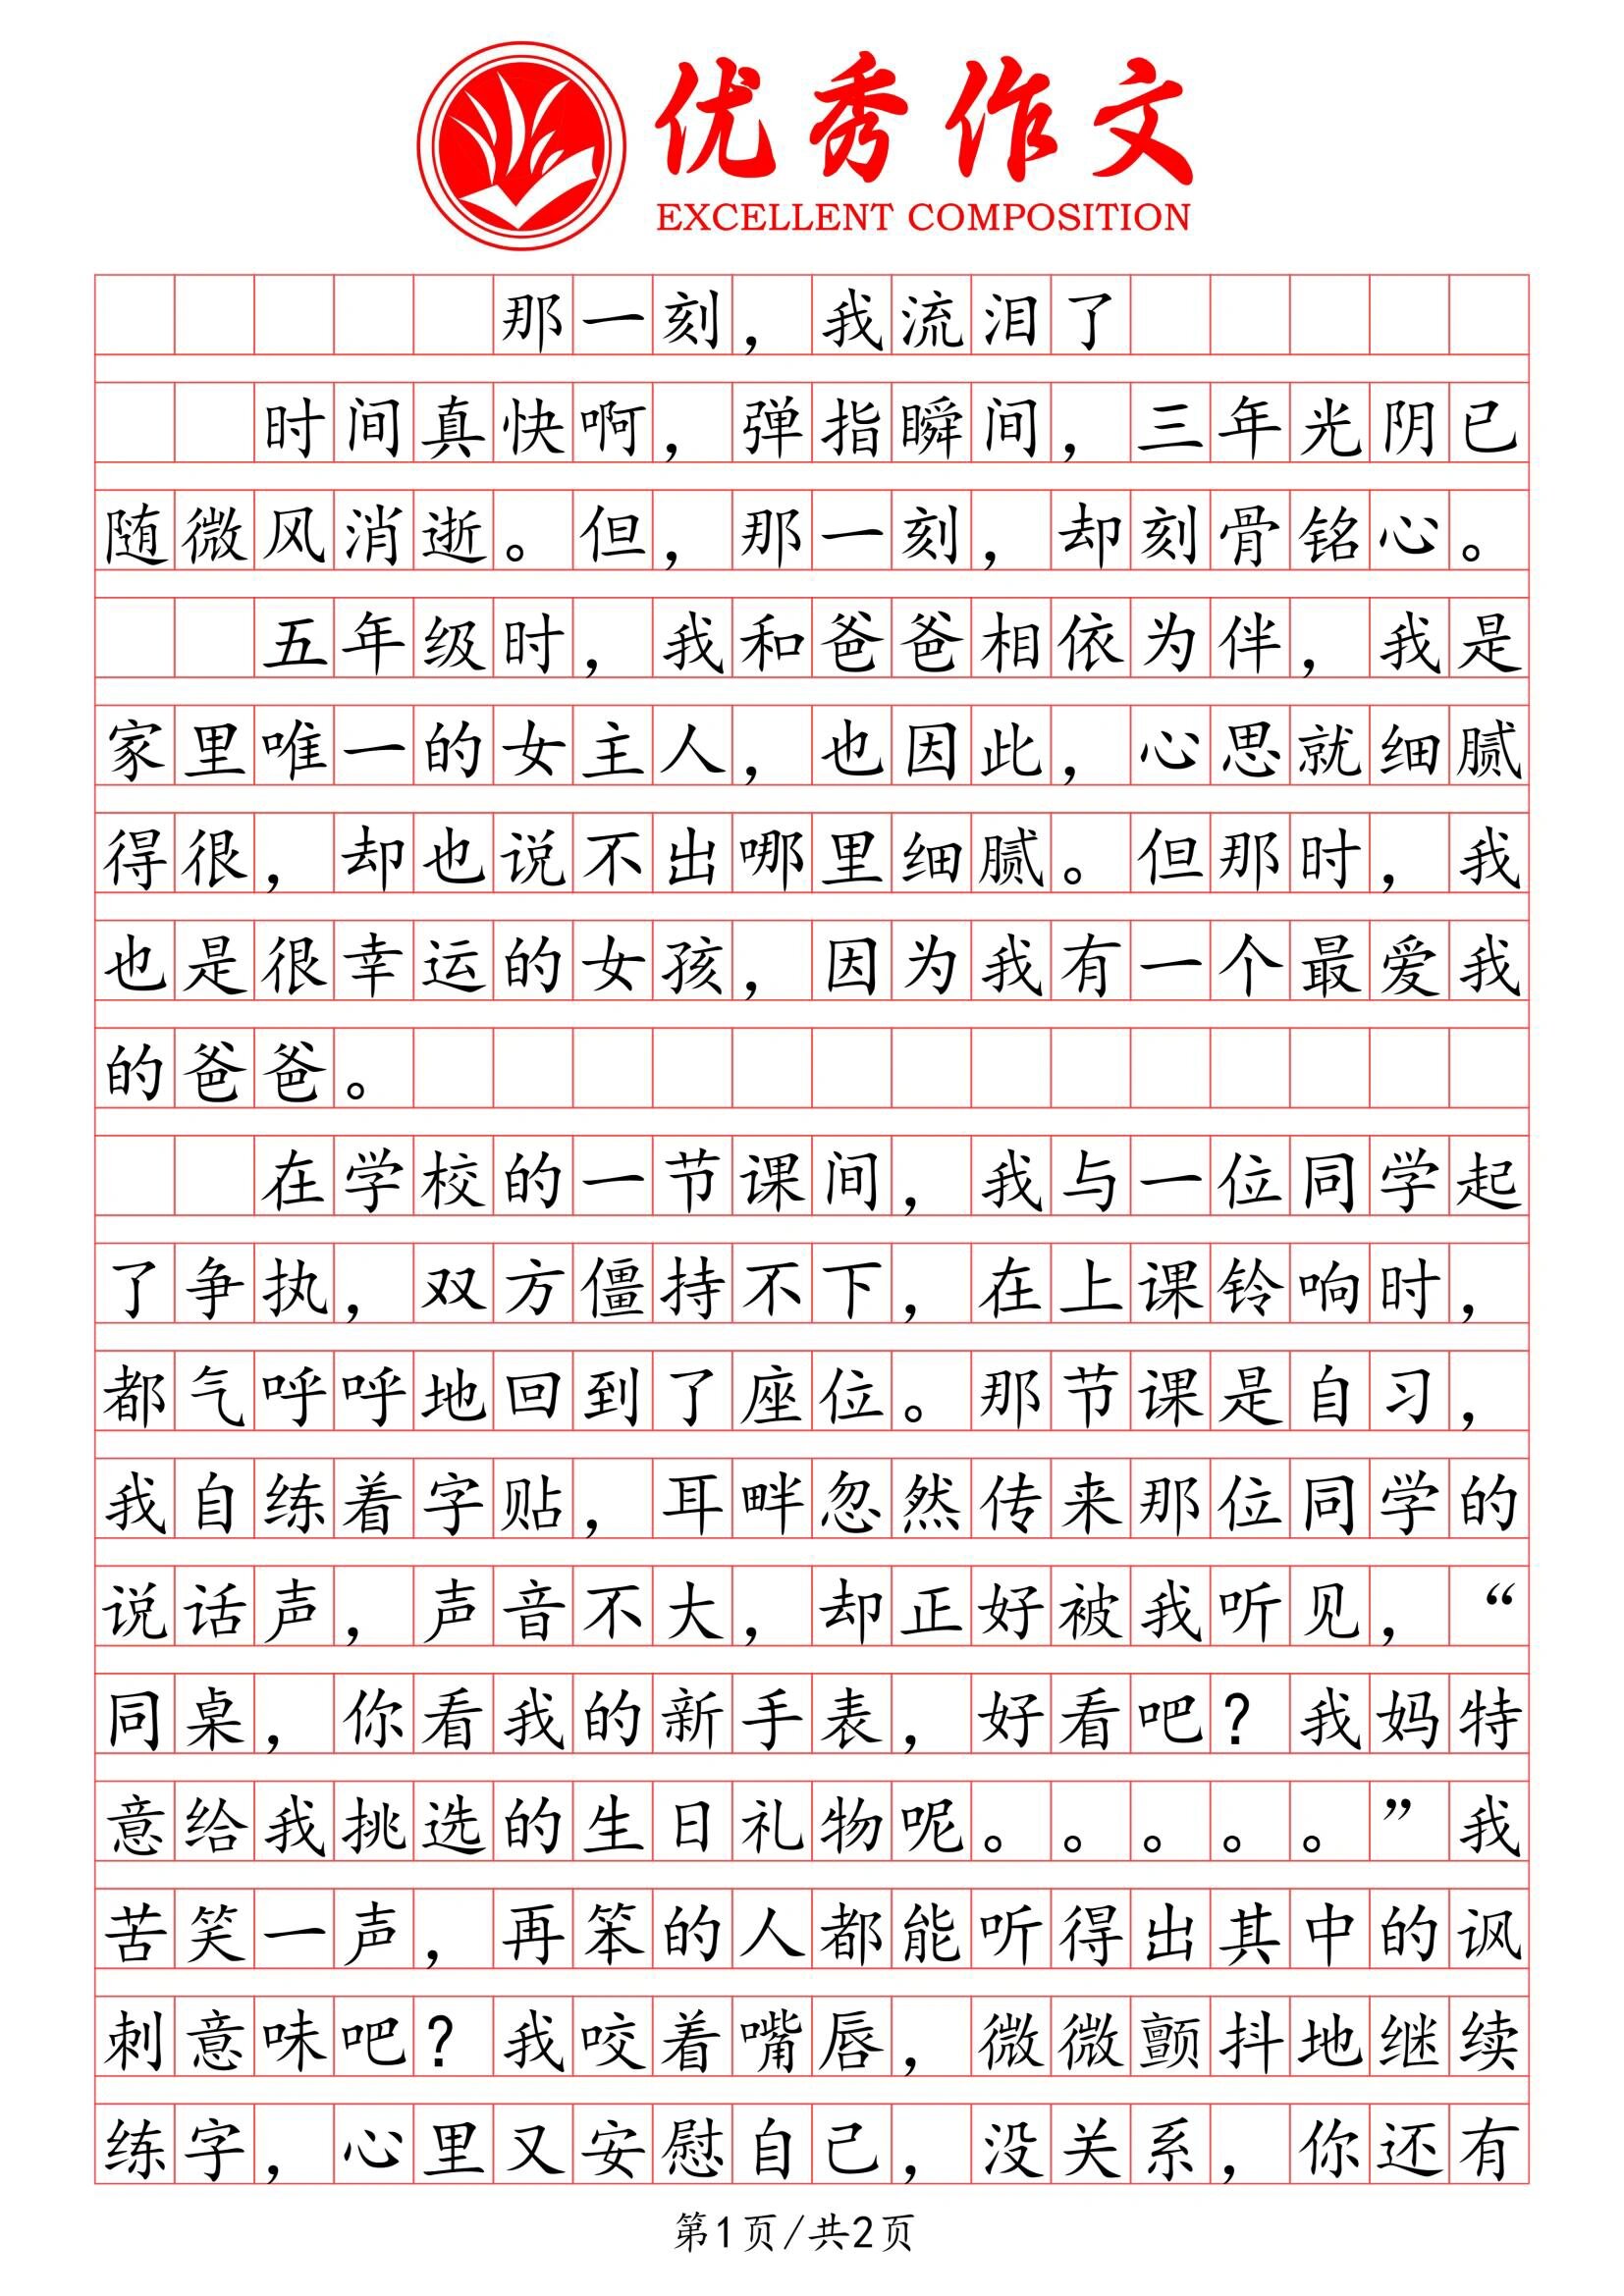 优秀作文
EXCELLENT COMPOSITION
那一刻，我流泪了
时间真快啊，弹指瞬间，三年光阴已
随微风消逝。但，那一刻，却刻骨铭心。
五年级时，我和爸爸相依为伴，我是
家里唯一的女主人，也因此，心思就细腻
得很，却也说不出哪里细腻。但那时，我
也是很幸运的女孩，因为我有一个最爱我
的爸爸。
在学校的一节课间，我与一位同学起
了争执，双方僵持不下，在上课铃响时，
都气呼呼地回到了座位。那节课是自习，
我自练着字贴，耳畔忽然传来那位同学的
说话声，声音不大，却正好被我听见，“
同桌，你看我的新手表，好看吧？我妈特
意给我挑选的生日礼物呢。。。。。”我
苦笑一声，再笨的人都能听得出其中的讽
刺意味吧？我咬着嘴唇，微微颤抖地继续
练字，心里又安慰自己，没关系，你还有
第1页/共2页